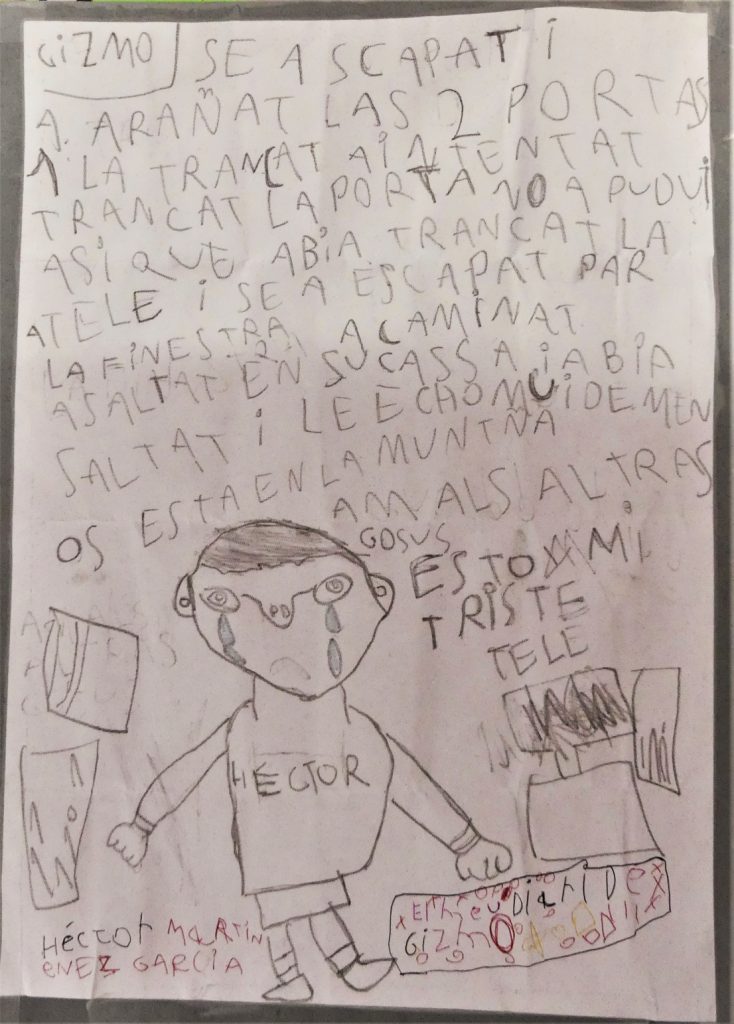 GIZMO SE A SCAPAT I
A ARAÑAT LAS 2 PORTAS
1 LA TRANCAT A INTENTAT
TRANCAT LA PORTA NO A PUDUI
ASI QUE ABIA TRANCAT LA
ATELE I SE A ESCAPAT PAR
LA FINESTRA A CAMINAT
ASALTAT EN SU CASSA I ABIA
SALTAT I LE ECHO MUI DE MEN
OS ESTA EN LA MUNTÑA
AM ALS ALTRAS
GOSUS
ESTO MMI
TRISTE
TELE
HECTOR
El meu Diari De
GIZMO
HÉCTOR MARTIN
ENEZ GARCIA